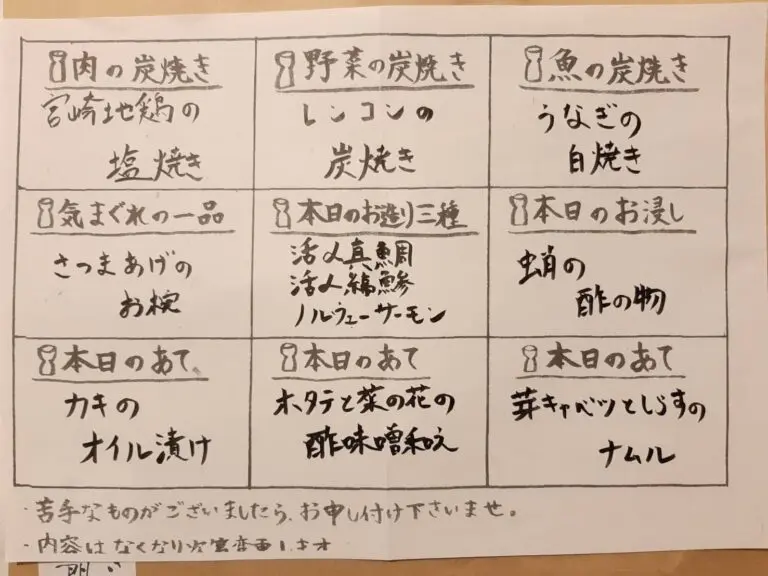 肉の炭焼き
宮崎地鶏の
塩焼き
野菜の炭焼き
レンコンの
炭焼き
魚の炭焼き
うなぎの
白焼き
気まぐれの一品
さつまあげの
お椀
本日のお造り三種
活〆真鯛
活〆縞鯵
ノルウェーサーモン
本日のお浸し
蛸の
酢の物
本日のあて
カキの
オイル漬け
本日のあて
ホタテと菜の花の
酢味噌和え
本日のあて
芽キャベツとしらすの
ナムル
・苦手なものがございましたら、お申し付け下さいませ。
・内容はなくなり次第変更します